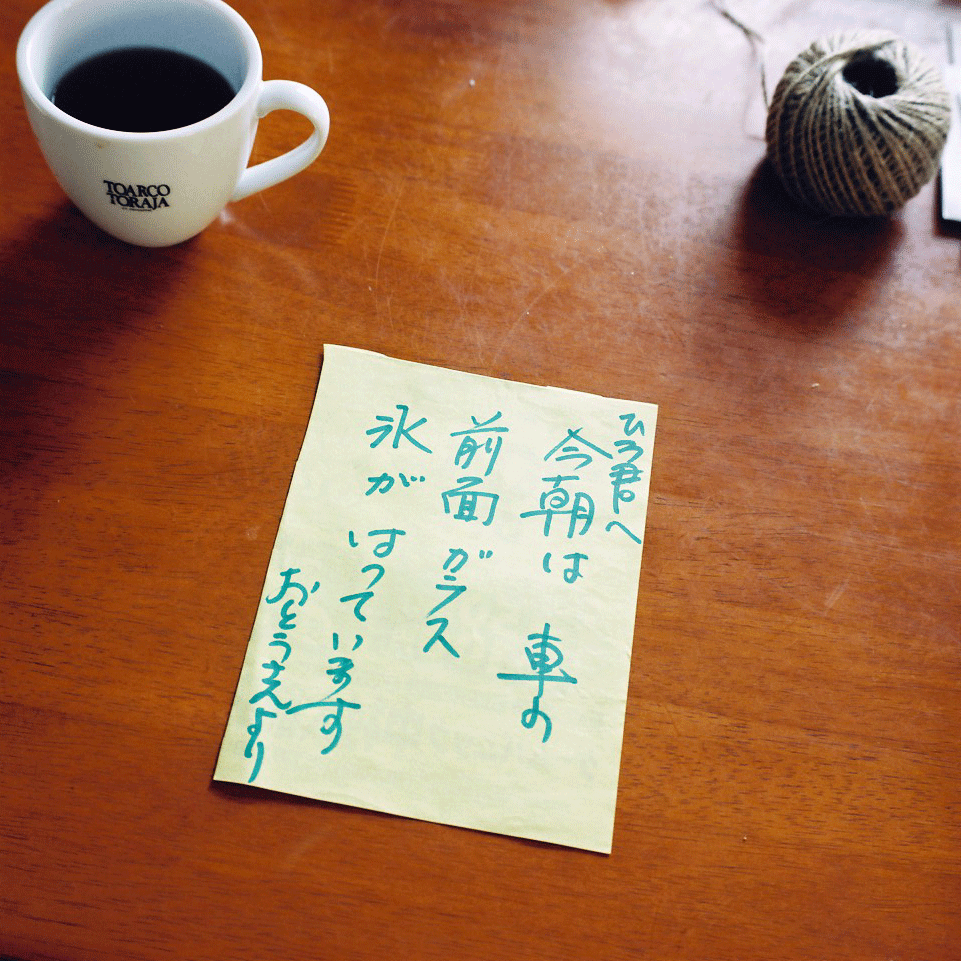 TOARCO
TORAJA
ひろ君へ
今朝は 車の
前面ガラス
氷がはっています
おとうさんより